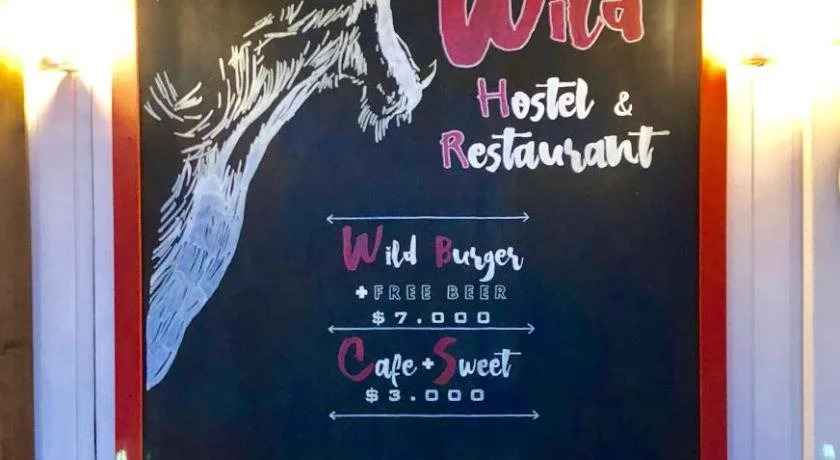 Wild
Hostel &
Restaurant
Wild Burger
+FREE BEER
$7.000
Cafe+Sweet
$3.000